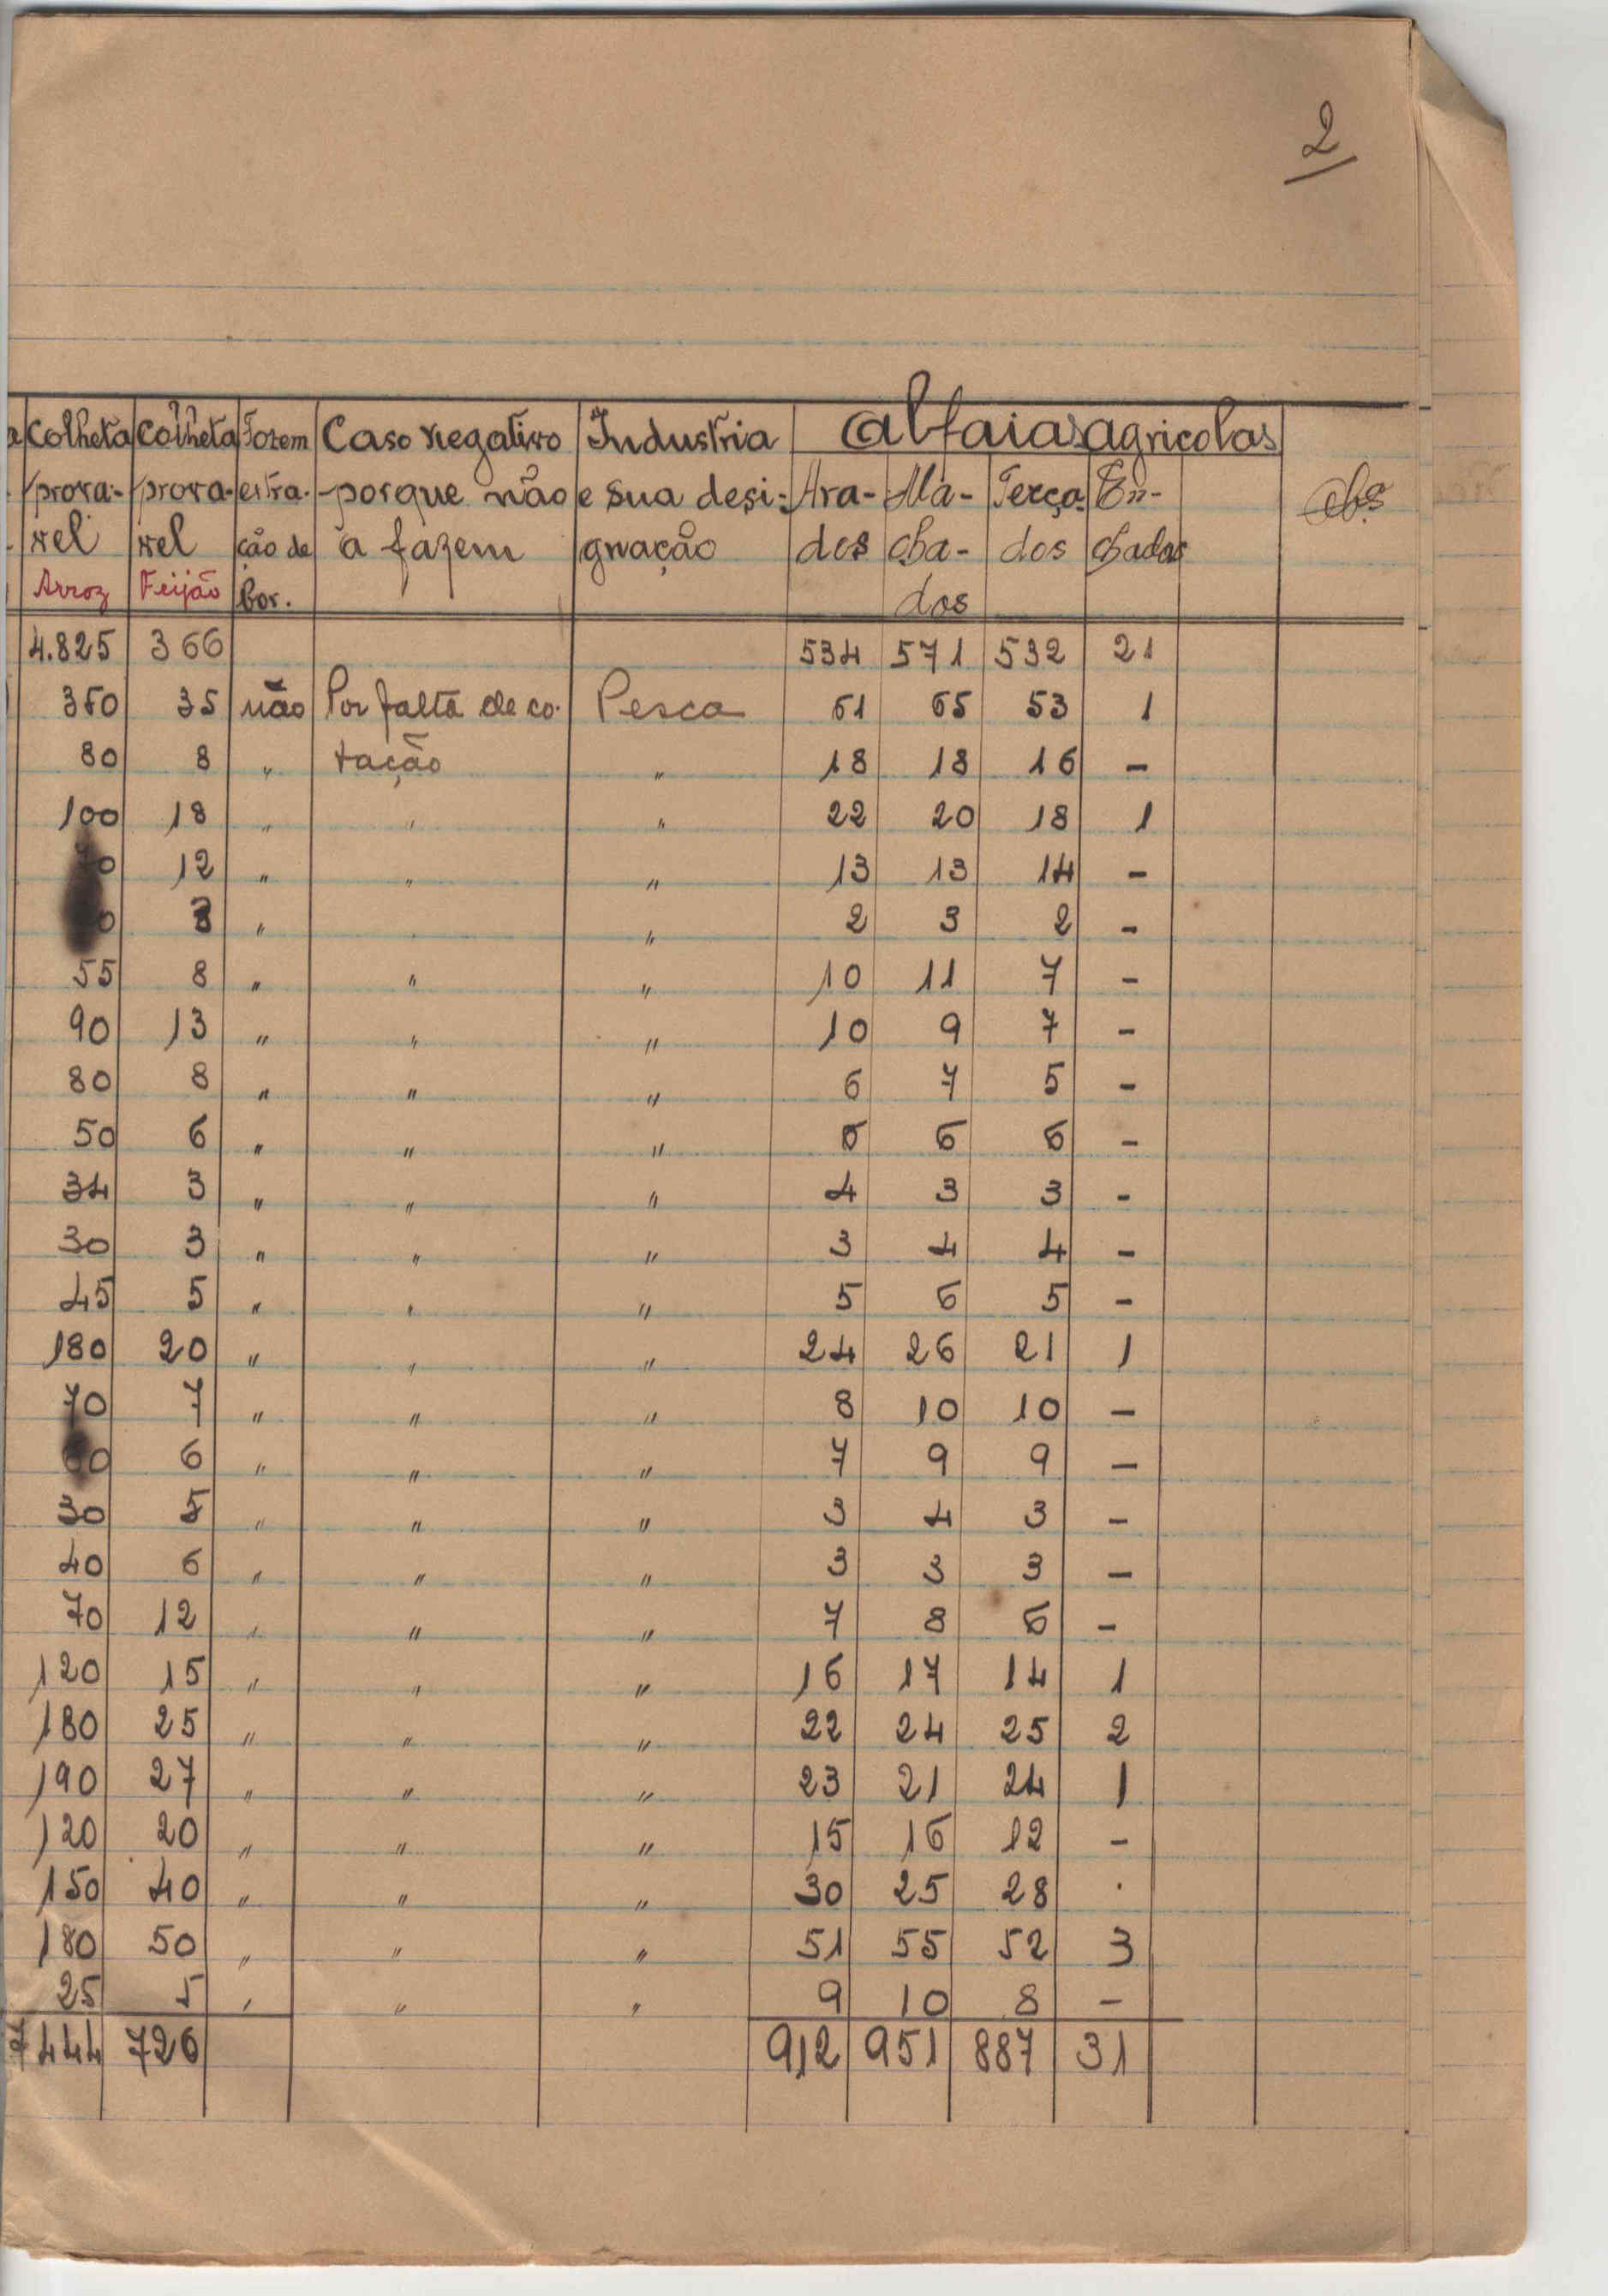 2
Colheta Colheta Fazem Caso negativo Industria Alfaias agricolas
prova- prova- extra- porque não e sua desi- Ara- Ma- Terça- En- Obs
vel vel ção de a fazem gnação dos cha- dos chadas
Arroz Feijão bor. dos
4.825 366 534 571 532 21
350 35 não Por falta de co- Pesca 61 65 53 1
80 8 " tação " 18 18 16 -
100 18 " " " 22 20 18 1
12 " " " 13 13 14 -
3 " " 2 3 2 -
55 8 " " " 10 11 7 -
90 13 " " " 10 9 7 -
80 8 " " " 6 7 5 -
50 6 " " " 6 6 6 -
34 3 " " " 4 3 3 -
30 3 " " " 3 4 4 -
45 5 " " " 5 6 5 -
180 20 " " " 24 26 21 1
70 7 " " " 8 10 10 -
6 " " " 7 9 9 -
30 " " " 3 4 3 -
40 6 " " " 3 3 3 -
70 12 " " " 7 8 6 -
120 15 " " " 16 17 14 1
180 25 " " " 22 24 25 2
190 27 " " " 23 21 24 1
120 20 " " " 15 16 12 -
150 40 " " " 30 25 28 .
180 50 " " " 51 55 52 3
25 5 " " " 9 10 8 -
7444 726 912 951 887 31